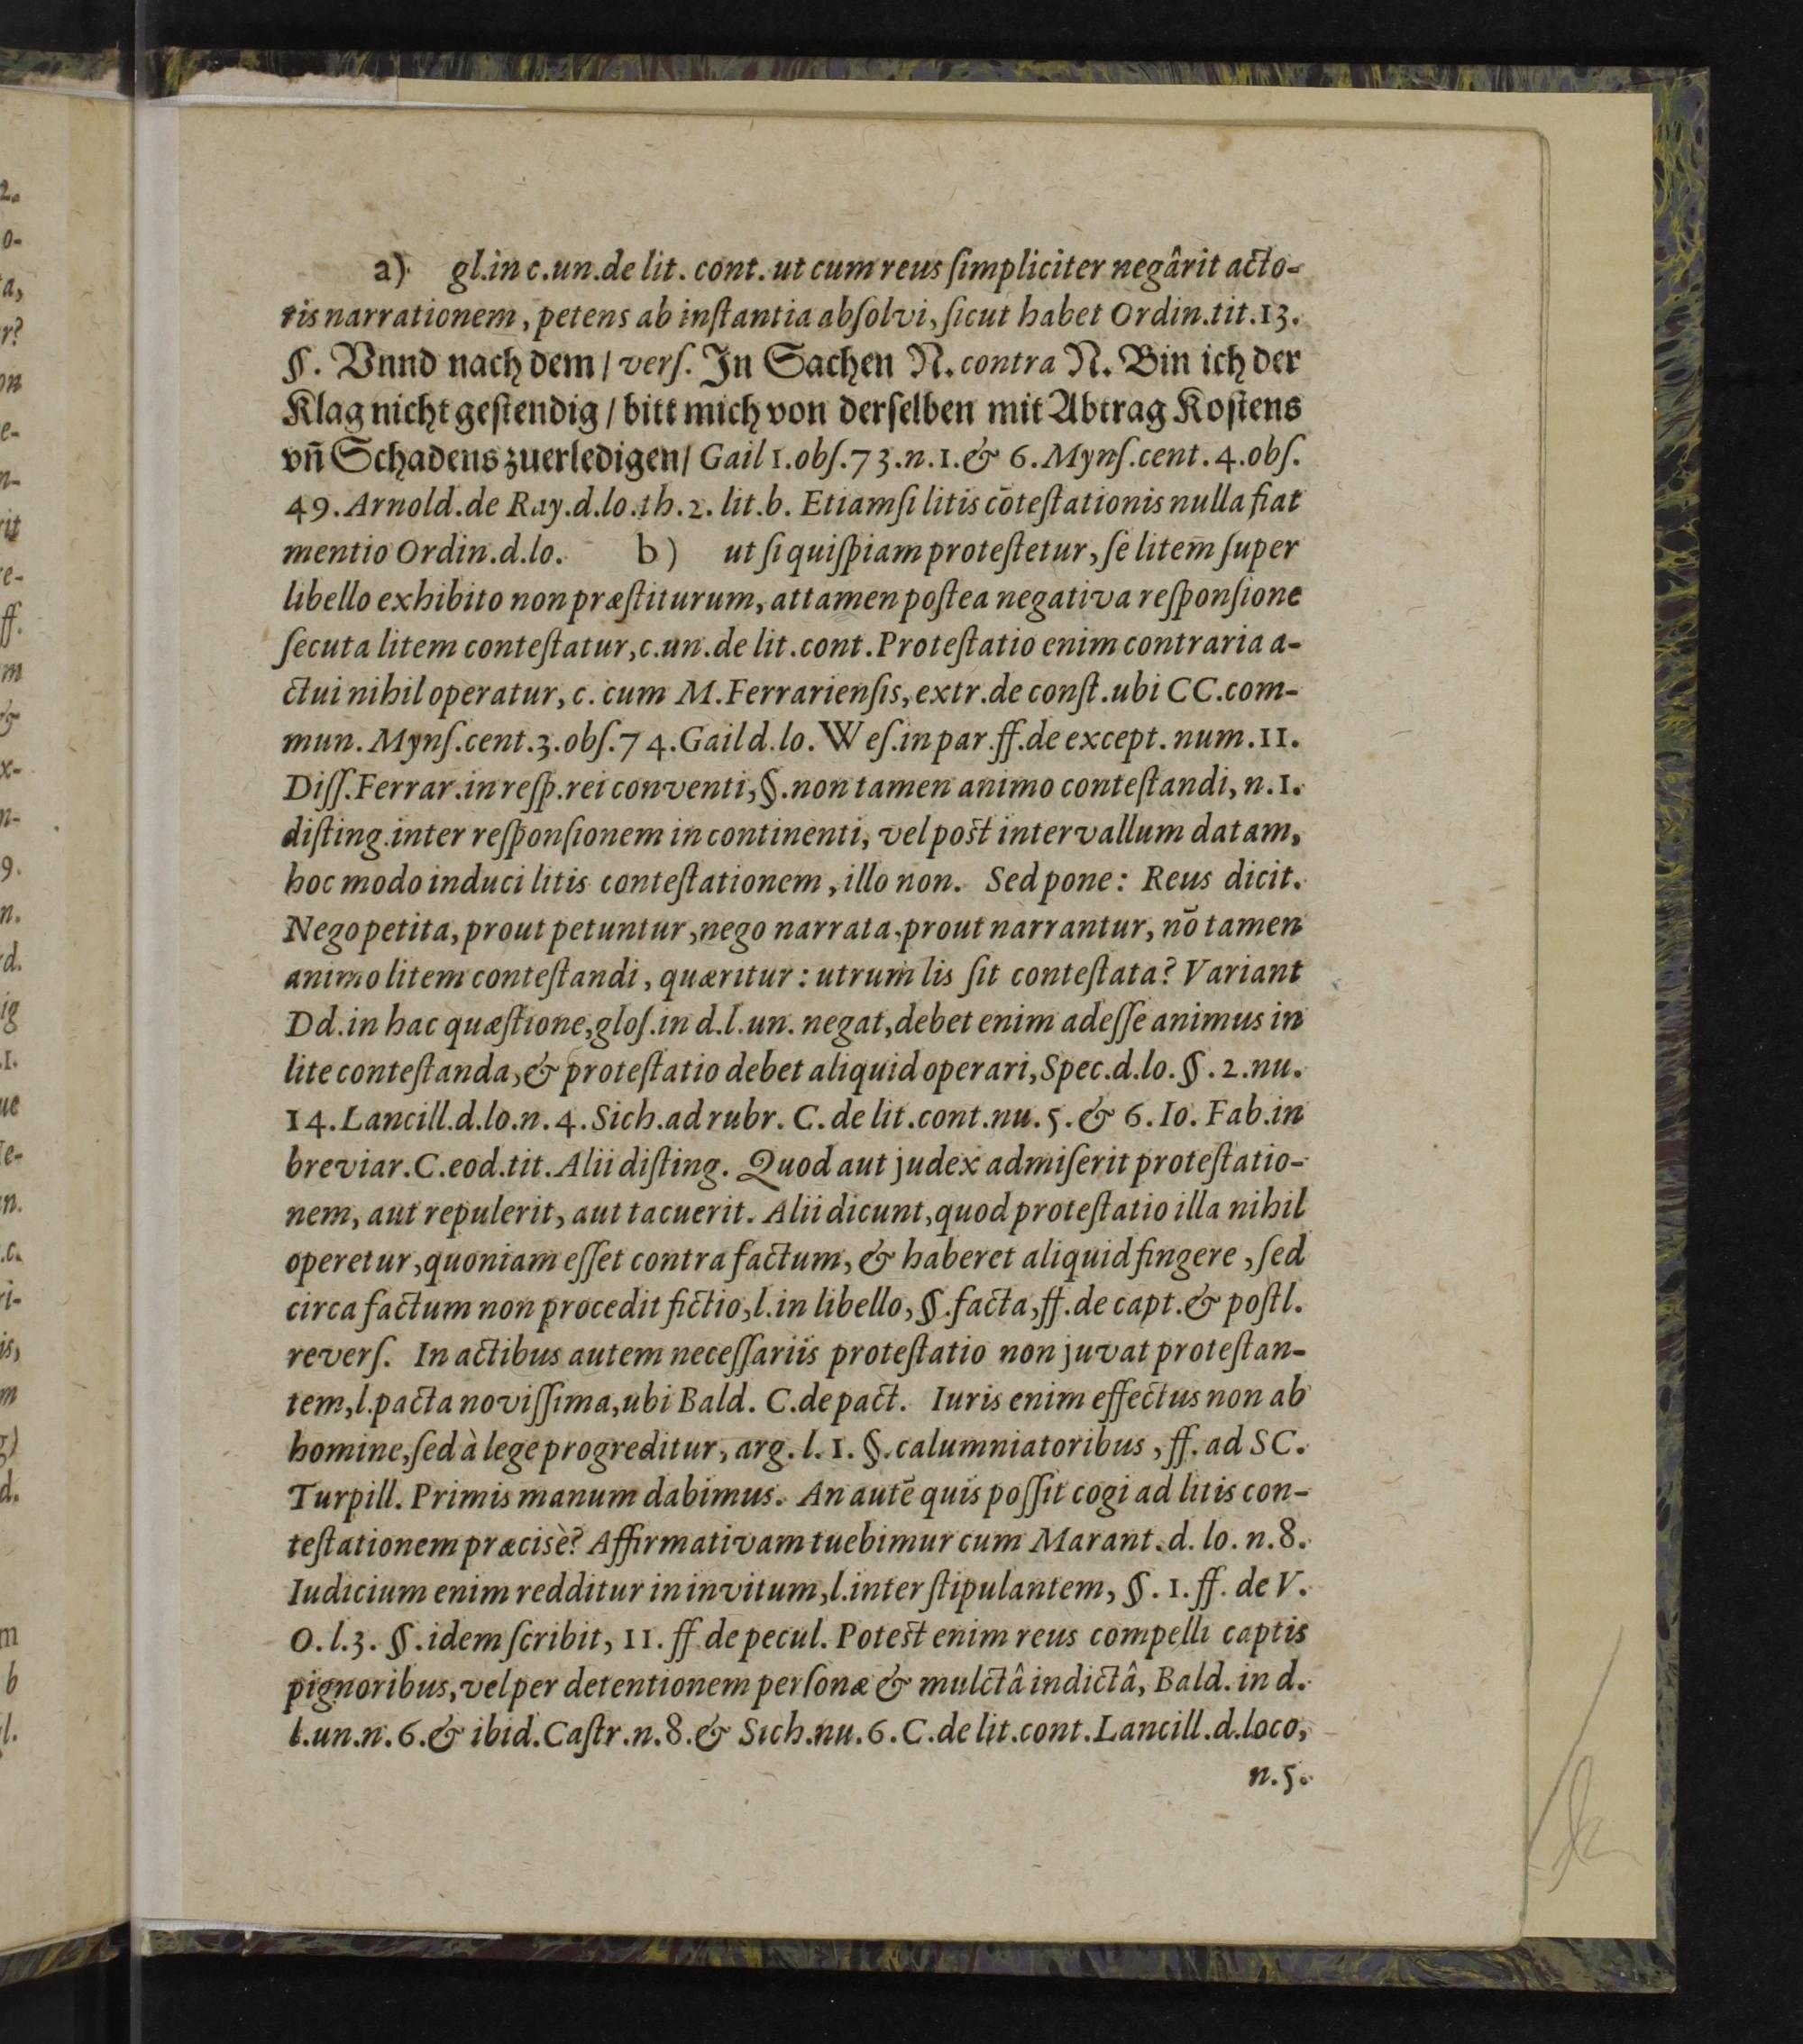 a) gl. in c. un. de lit. cont. ut cum reus ſimpliciter negârit acto-
ris narrationem, petens ab inſtantia abſolvi, ſicut habet Ordin. tit. 13.
§. Vnnd nach dem / verſ. In Sachen N. contra N. Bin ich der
Klag nicht geſtendig / bitt mich von derſelben mit Abtrag Koſtens
vñ Schadens zuerledigen / Gail 1. obſ. 73. n. 1. & 6. Mynſ. cent. 4. obſ.
49. Arnold. de Ray. d. lo. th. 2. lit. b. Etiamſi litis cōteſtationis nulla fiat
mentio Ordin. d. lo. b) ut ſi quiſpiam proteſtetur, ſe litem ſuper
libello exhibito non præſtiturum, attamen poſtea negativa reſponſione
ſecuta litem conteſtatur, c. un. de lit. cont. Proteſtatio enim contraria a-
ctui nihil operatur, c. cum M. Ferrarienſis, extr. de conſt. ubi CC. com-
mun. Mynſ. cent. 3. obſ. 74. Gail d. lo. Weſ. in par. ff. de except. num. 11.
Diſſ. Ferrar. in reſp. rei conventi, §. non tamen animo conteſtandi, n. 1.
diſting. inter reſponſionem in continenti, vel poſt intervallum datam,
hoc modo induci litis conteſtationem, illo non. Sed pone: Reus dicit.
Nego petita, prout petuntur, nego narrata, prout narrantur, nō tamen
animo litem conteſtandi, quæritur: utrum lis ſit conteſtata? Variant
Dd. in hac quæſtione, gloſ. in d. l. un. negat, debet enim adeſſe animus in
lite conteſtanda, & proteſtatio debet aliquid operari, Spec. d. lo. §. 2. nu.
14. Lancill. d. lo. n. 4. Sich. ad rubr. C. de lit. cont. nu. 5. & 6. Io. Fab. in
breviar. C. eod. tit. Alii diſting. Quod aut judex admiſerit proteſtatio-
nem, aut repulerit, aut tacuerit. Alii dicunt, quod proteſtatio illa nihil
operetur, quoniam eſſet contra factum, & haberet aliquid fingere, ſed
circa factum non procedit fictio, l. in libello, §. facta, ff. de capt. & poſtl.
reverſ. In actibus autem neceſſariis proteſtatio non juvat proteſtan-
tem, l. pacta noviſſima, ubi Bald. C. de pact. Iuris enim effectus non ab
homine, ſed à lege progreditur, arg. l. 1. §. calumniatoribus, ff. ad SC.
Turpill. Primis manum dabimus. An autē quis poſſit cogi ad litis con-
teſtationem præcisè? Affirmativam tuebimur cum Marant. d. lo. n. 8.
Iudicium enim redditur in invitum, l. inter ſtipulantem, §. 1. ff. de V.
O. l. 3. §. idem ſcribit, 11. ff de pecul. Poteſt enim reus compelli captis
pignoribus, vel per detentionem perſonæ & mulctâ indictâ, Bald. in d.
l. un. n. 6. & ibid. Caſtr. n. 8. & Sich. nu. 6. C. de lit. cont. Lancill. d. loco,
n. 5.